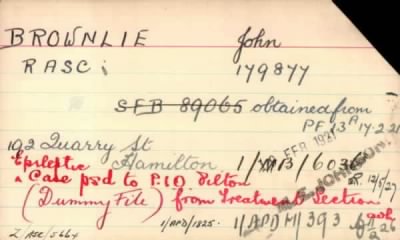 BROWNLIE John
RASC; 179877
SFB 89065 obtained from
PF 13A 17.2.21
192 Quarry St
FEB 1921
Epileptic Hamilton 1/ 13/6036
Case psd to P.I.O Bilton R. 12/5/27
(Dummy File) from Treatment Section
1/APD/1825. 1/APDM/393
Z/ASC/5664 2.26